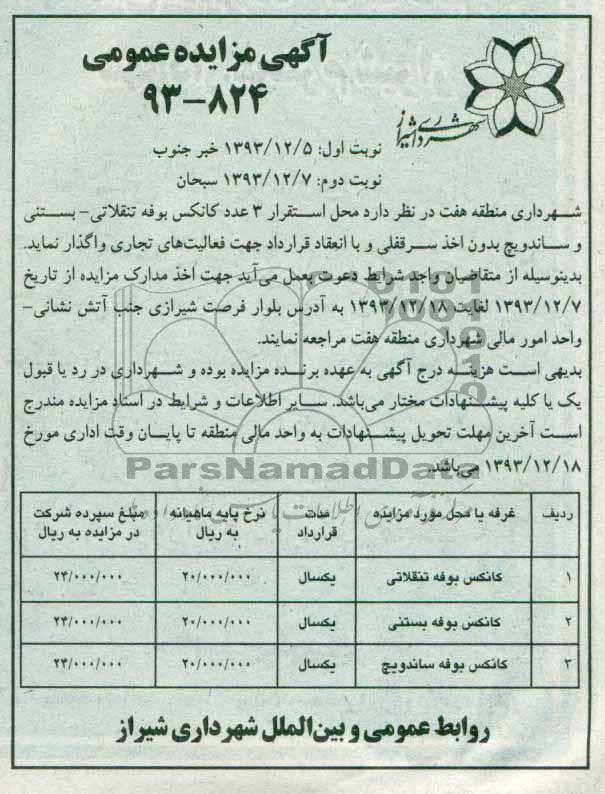 آگهی مزایده عمومی
۹۳-۸۲۴
شهرداری شیراز
نوبت اول: ۱۳۹۳/۱۲/۵ خبر جنوب
نوبت دوم: ۱۳۹۳/۱۲/۷ سبحان
شهرداری منطقه هفت در نظر دارد محل استقرار ۳ عدد کانکس بوفه تنقلاتی- بستنی
و ساندویچ بدون اخذ سرقفلی و با انعقاد قرارداد جهت فعالیت‌های تجاری واگذار نماید.
بدینوسیله از متقاضیان واجد شرایط دعوت بعمل می‌آید جهت اخذ مدارک مزایده از تاریخ
۱۳۹۳/۱۲/۷ لغایت ۱۳۹۳/۱۲/۱۸ به آدرس بلوار فرصت شیرازی جنب آتش نشانی-
واحد امور مالی شهرداری منطقه هفت مراجعه نمایند.
بدیهی است هزینه درج آگهی به عهده برنده مزایده بوده و شهرداری در رد یا قبول
یک یا کلیه پیشنهادات مختار می‌باشد. سایر اطلاعات و شرایط در اسناد مزایده مندرج
است آخرین مهلت تحویل پیشنهادات به واحد مالی منطقه تا پایان وقت اداری مورخ
۱۳۹۳/۱۲/۱۸ می‌باشد.
ParsNamadData
ردیف غرفه یا محل مورد مزایده مدت قرارداد نرخ پایه ماهیانه به ریال مبلغ سپرده شرکت در مزایده به ریال
۱ کانکس بوفه تنقلاتی یکسال ۲۰/۰۰۰/۰۰۰ ۲۴/۰۰۰/۰۰۰
۲ کانکس بوفه بستنی یکسال ۲۰/۰۰۰/۰۰۰ ۲۴/۰۰۰/۰۰۰
۳ کانکس بوفه ساندویچ یکسال ۲۰/۰۰۰/۰۰۰ ۲۴/۰۰۰/۰۰۰
روابط عمومی و بین‌الملل شهرداری شیراز